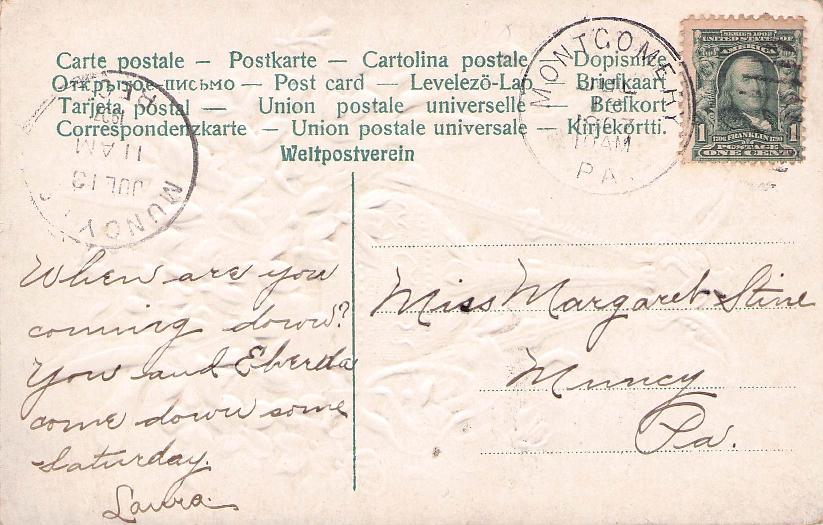 Carte postale — Postkarte — Cartolina postale — Dopisnice
Открытое письмо — Post card — Levelező-Lap — Briefkaart
Tarjeta postal — Union postale universelle — Brefkort
Correspondenzkarte — Union postale universale — Kirjekortti.
Weltpostverein
MONTGOMERY
10AM
PA.
SERIES 1902
UNITED STATES OF
AMERICA
1 FRANKLIN 1
POSTAGE
ONE CENT
REC'D
1907
11 AM
JUL 13
MUNCY
When are you
coming down?
You and Eberda
come down some
Saturday.
Laura.
Miss Margaret Stine
Muncy
Pa.